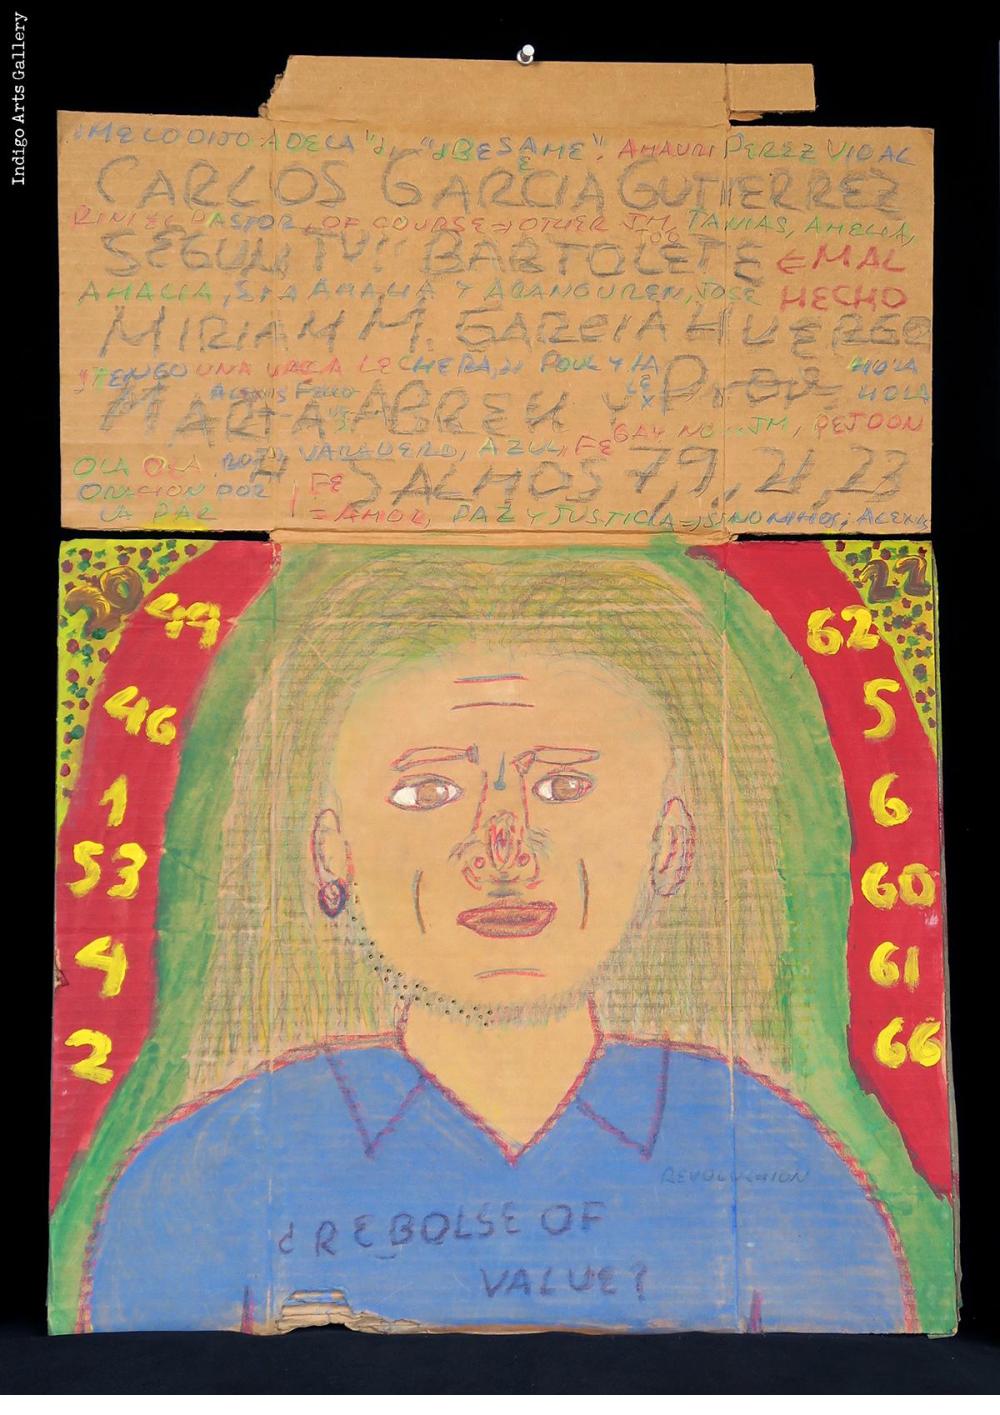 Indigo Arts Gallery
¿ME LO DIJO ADELA"?, "¿BESAME". AMAURI PEREZ VIDAL
CARLOS GARCIA GUTIERREZ
PASTOR, OF COURSE OTHER JM, TANIAS, AMELIA,
BARTOLETE
EMAL
HECHO
AMALIA, AMALIA Y ARANGUREN, JOSE
MIRIAM M. GARCIA HUERGO
TENGO UNA VACA LECHERA, POUL Y LA
HOLA
HOLA
MARTA ABREU Y
GAY NO...JM, PEJOON
OLA OLA. ROJO VARADERO, AZUL, FE
ORACION POR
LA PAZ
FE
SALMOS 7,9, 21, 23
= AMOR, PAZ Y JUSTICIA SINONIMOS; ALEXIS
20
22
49
62
46
5
1
6
53
60
4
61
2
66
REVOLUCHION
¿REBOLSE OF
VALUE?